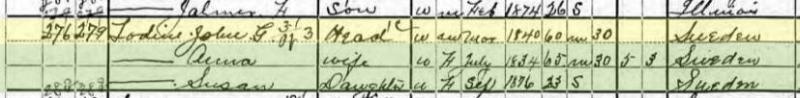 Jalmer F Son W m Feb 1874 26 S Illinois
276 279 Lodine John G. Head W m Nov 1840 60 m 30 Sweden
— Anna wife W F July 1834 65 m 30 5 3 Sweden
— Susan Daughter W F Sep 1876 23 S Sweden